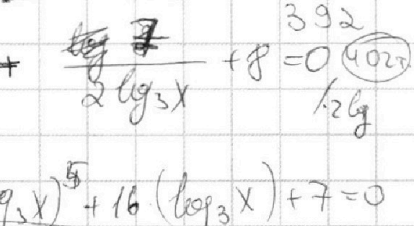 392
+ ‾‾‾ / 2 log₃x + 8 = 0
/·2lg
g₃x)⁵ + 16·(log₃x) + 7 = 0